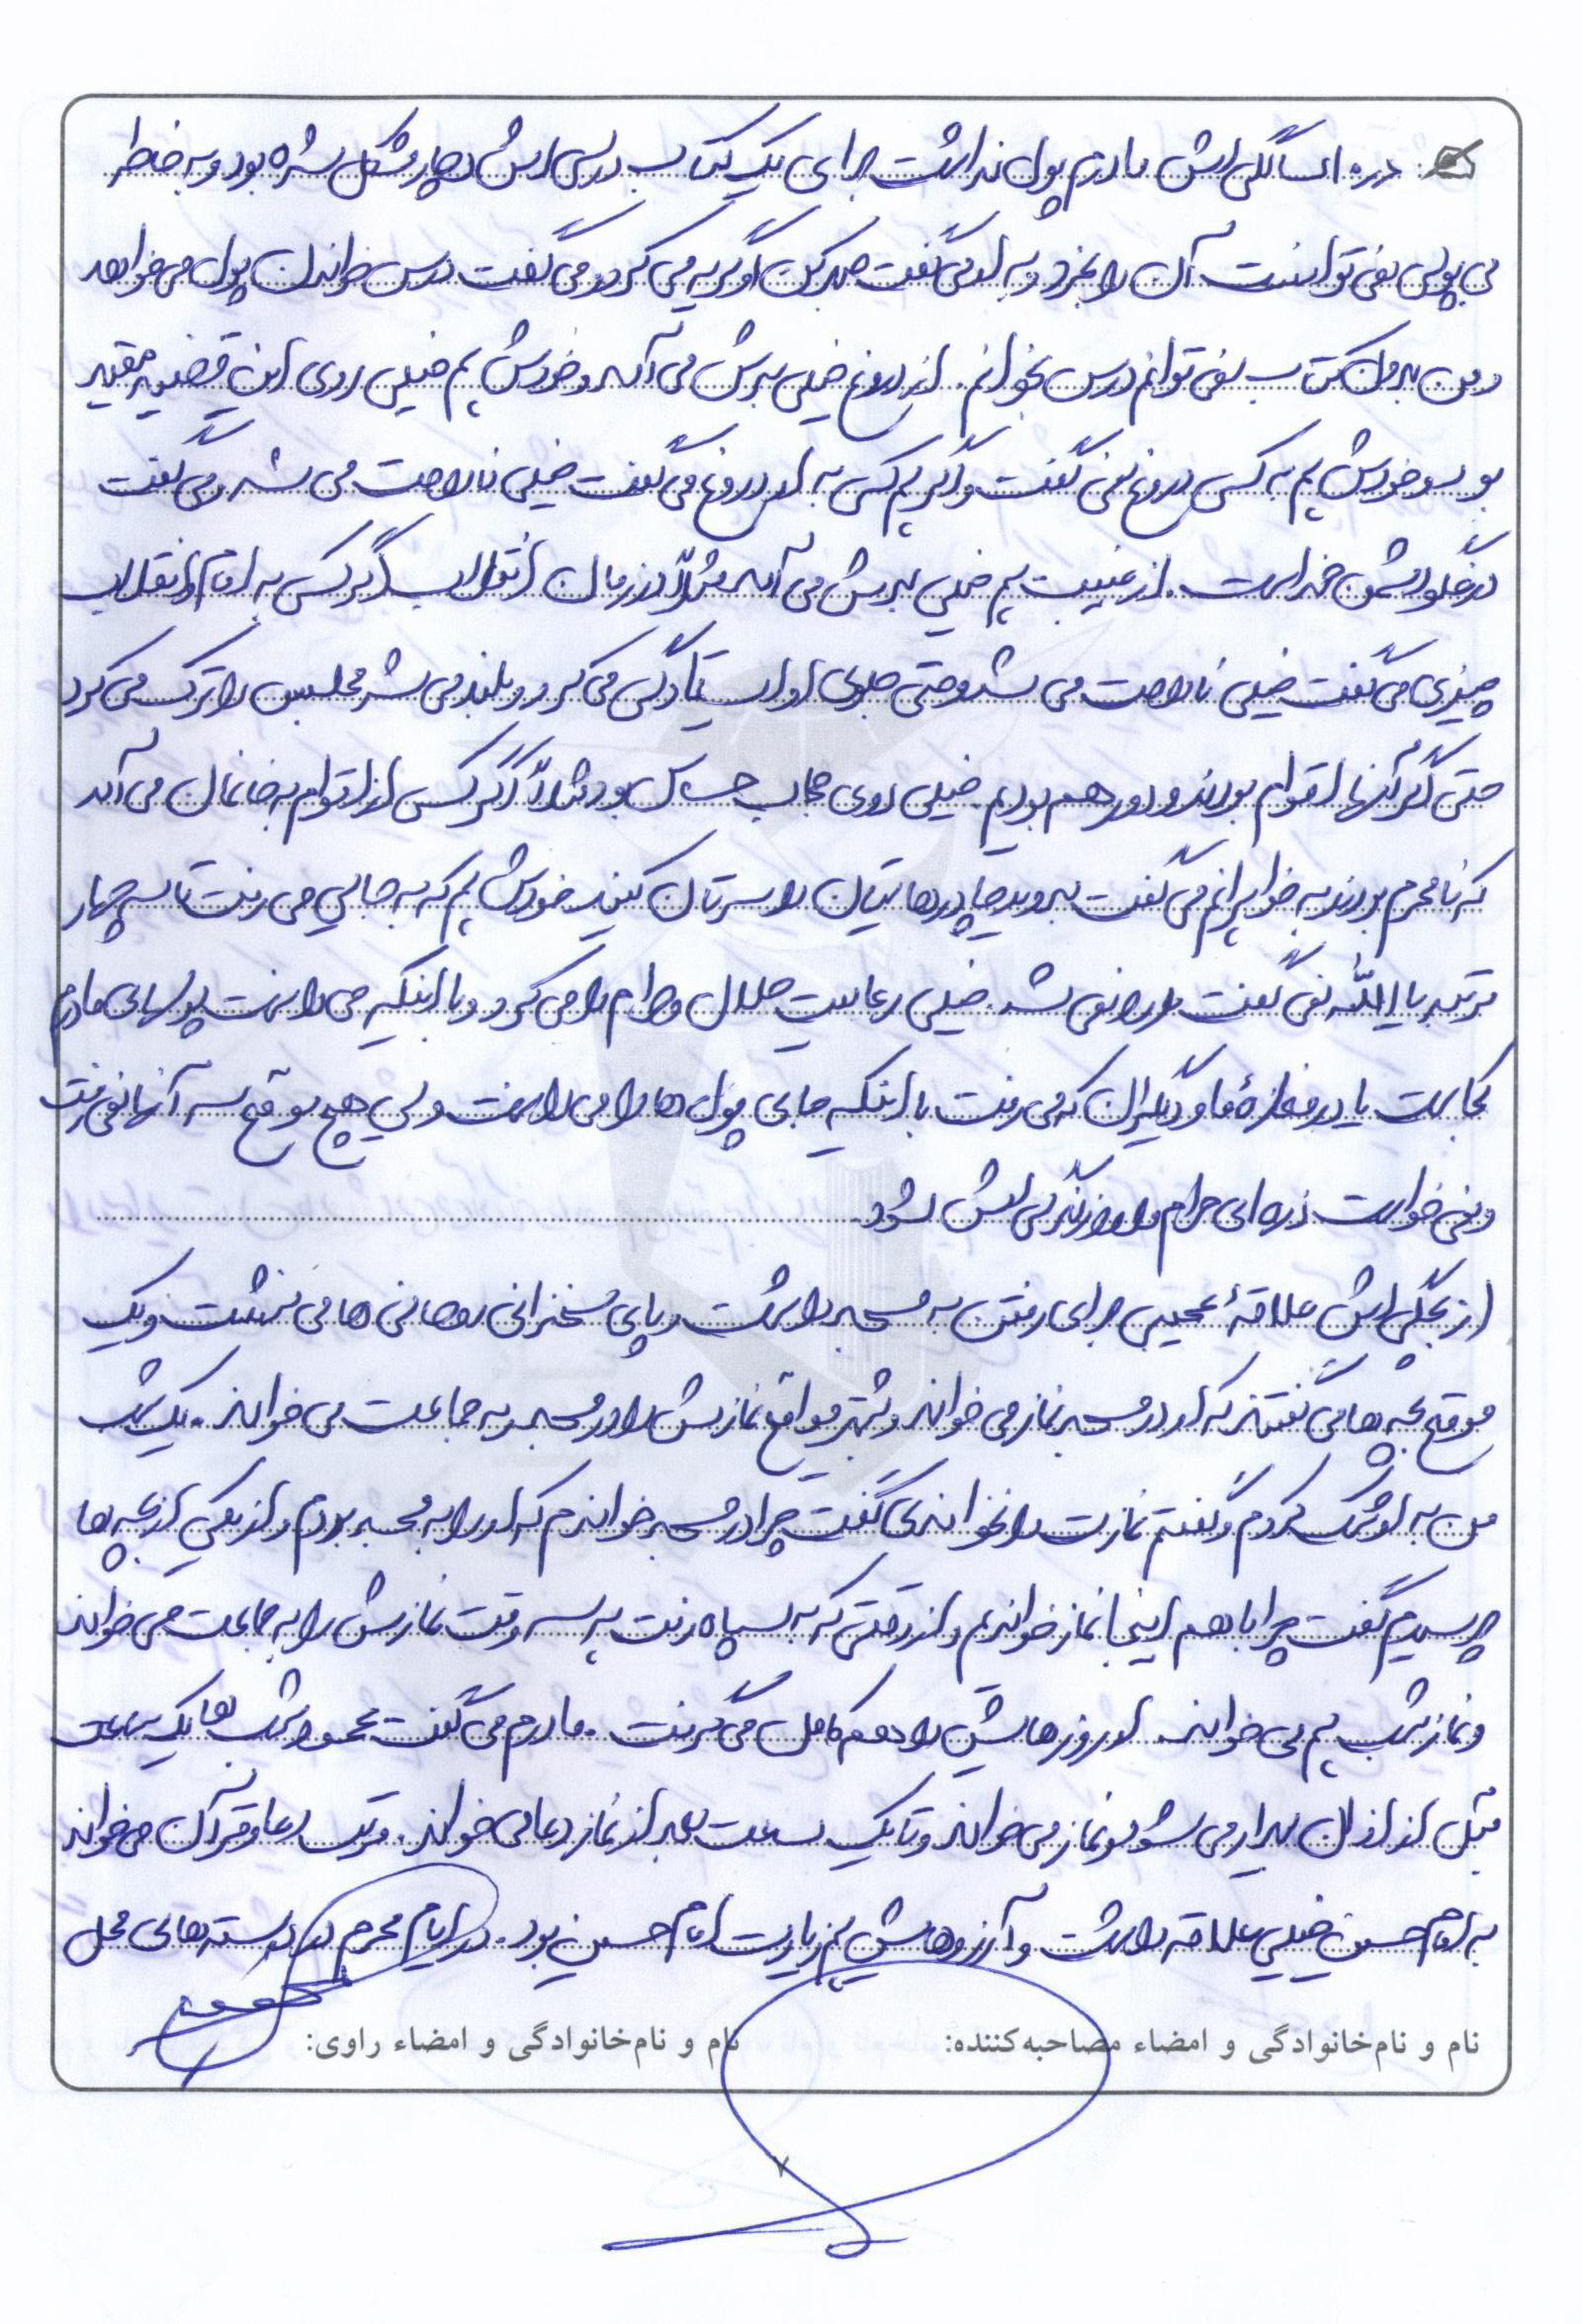 در ۱۵ سالگی‌اش مادرم پول نداشت برای یک کتاب درسی‌اش دچار مشکل شده بود و به خاطر
بی پولی نمی‌توانست آن را بخرد و به او می‌گفت صبر کن او گریه می‌کرد و می‌گفت درس خواندن پول می‌خواهد
و من بدون کتاب نمی‌توانم درس بخوانم. از دروغ خیلی بدش می‌آمد و خودش هم خیلی روی این قضیه مقید
بود و خودش هم به کسی دروغ نمی‌گفت و اگر هم کسی به او دروغ می‌گفت خیلی ناراحت می‌شد و می‌گفت
دروغگو دشمن خداست. از غیبت هم خیلی بدش می‌آمد مثلاً در زمان انقلاب اگر کسی به امام و انقلاب
چیزی می‌گفت خیلی ناراحت می‌شد و حتی جلوی او ایستادگی می‌کرد و بلند می‌شد مجلس را ترک می‌کرد
حتی اگر آنها اقوام بودند و دور هم بودیم. خیلی روی حجاب حساس بود مثلاً اگر کسی از اقوام به خانه‌مان می‌آمد
که نامحرم بودند به خواهرانم می‌گفت بروید چادرهایتان را سرتان کنید خودش هم که به جایی می‌رفت تا سه چهار
مرتبه یا الله نمی‌گفت وارد نمی‌شد. خیلی رعایت حلال و حرام را می‌کرد و با اینکه می‌دانست پولهای مادرم
کجاست یا در مغازهٔ ما و دیگران که می‌رفت با اینکه جای پول‌ها را می‌دانست ولی هیچ موقع سر آنها نمی‌رفت
و نمی‌خواست ذره‌ای حرام وارد زندگی‌اش شود.
از بچگی‌اش علاقهٔ عجیبی برای رفتن به مسجد داشت و پای سخنرانی روحانی‌ها می‌نشست و یک
موقع بچه‌ها می‌گفتند که او در مسجد نماز می‌خواند و بیشتر مواقع نمازش را در مسجد به جماعت می‌خواند. یک شب
من به او شک کردم و گفتم نمازت را نخوانده‌ای گفت چرا در مسجد خواندم که او را به مسجد بردم و از یکی از بچه‌ها
پرسیدم گفت چرا با هم اینجا نماز خواندیم و از وقتی که به سپاه رفت هر سه وقت نمازش را به جماعت می‌خواند
و نماز شب هم می‌خواند. او روزه‌هایش را هم کامل می‌گرفت. مادرم می‌گفت محمود شب‌ها یک ساعت
قبل از اذان بیدار می‌شود و نماز می‌خواند و تا یک ساعت بعد از نماز دعا می‌خواند. مرتب دعا و قرآن می‌خواند
به امام حسین خیلی علاقه داشت و آرزوهایش هم زیارت امام حسین بود. در ایام محرم در دسته‌های محل
نام و نام‌خانوادگی و امضاء مصاحبه‌کننده: نام و نام‌خانوادگی و امضاء راوی:
۷